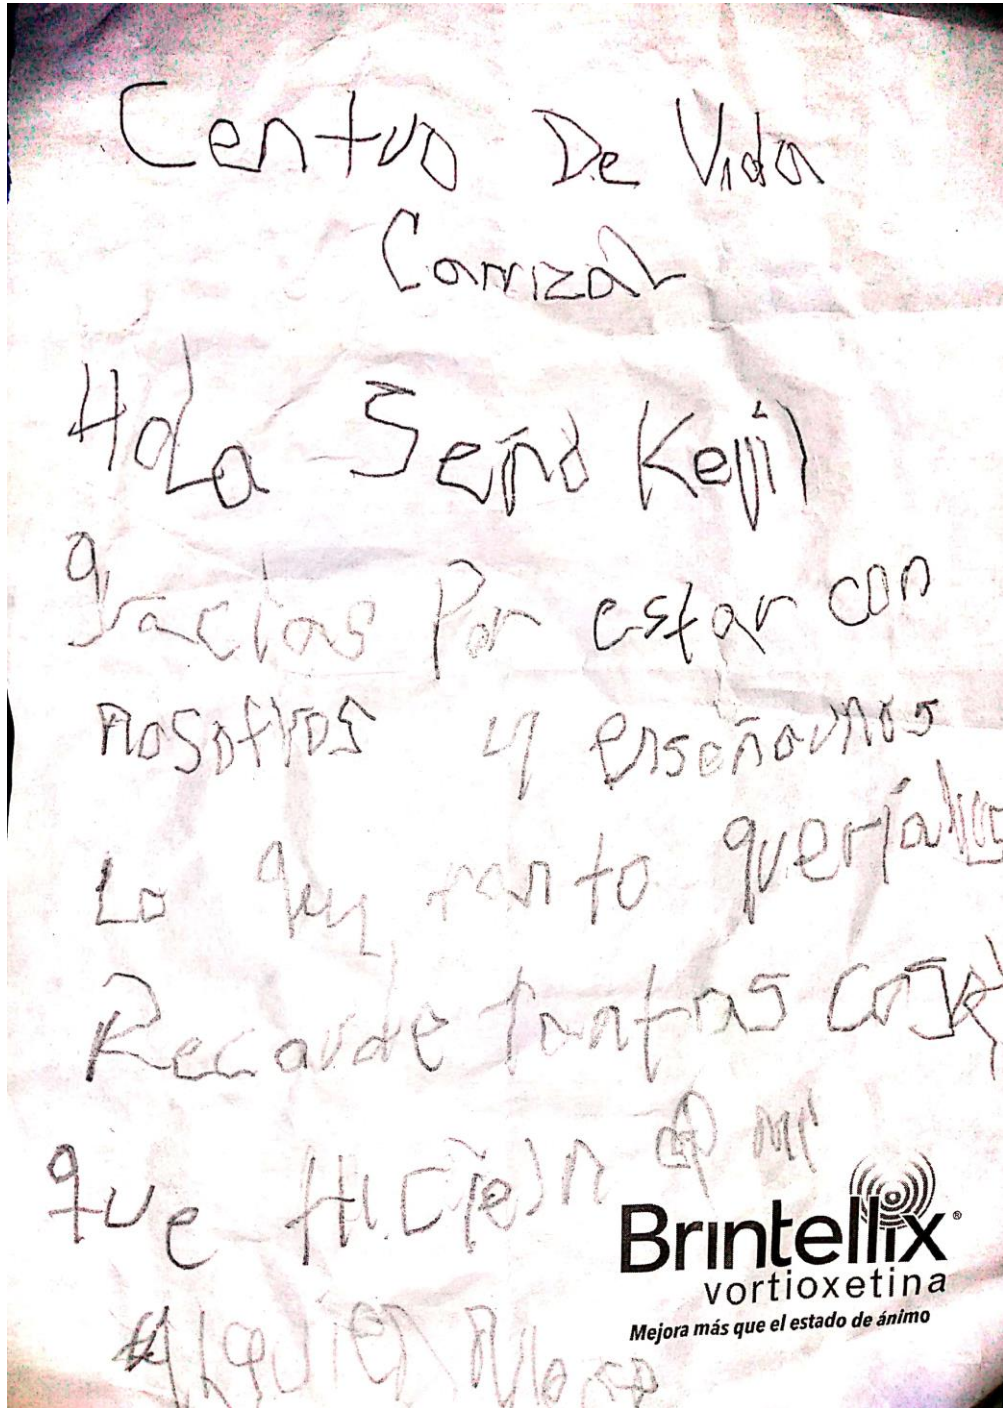 Centro De Vida
Canizal
Hola Seño Keiji
gracias Por estar con
nosotros y enseñarnos
Lo que tanto quería
Recorde tantas cosas
que Hicieron
Brintellix®
vortioxetina
Mejora más que el estado de ánimo